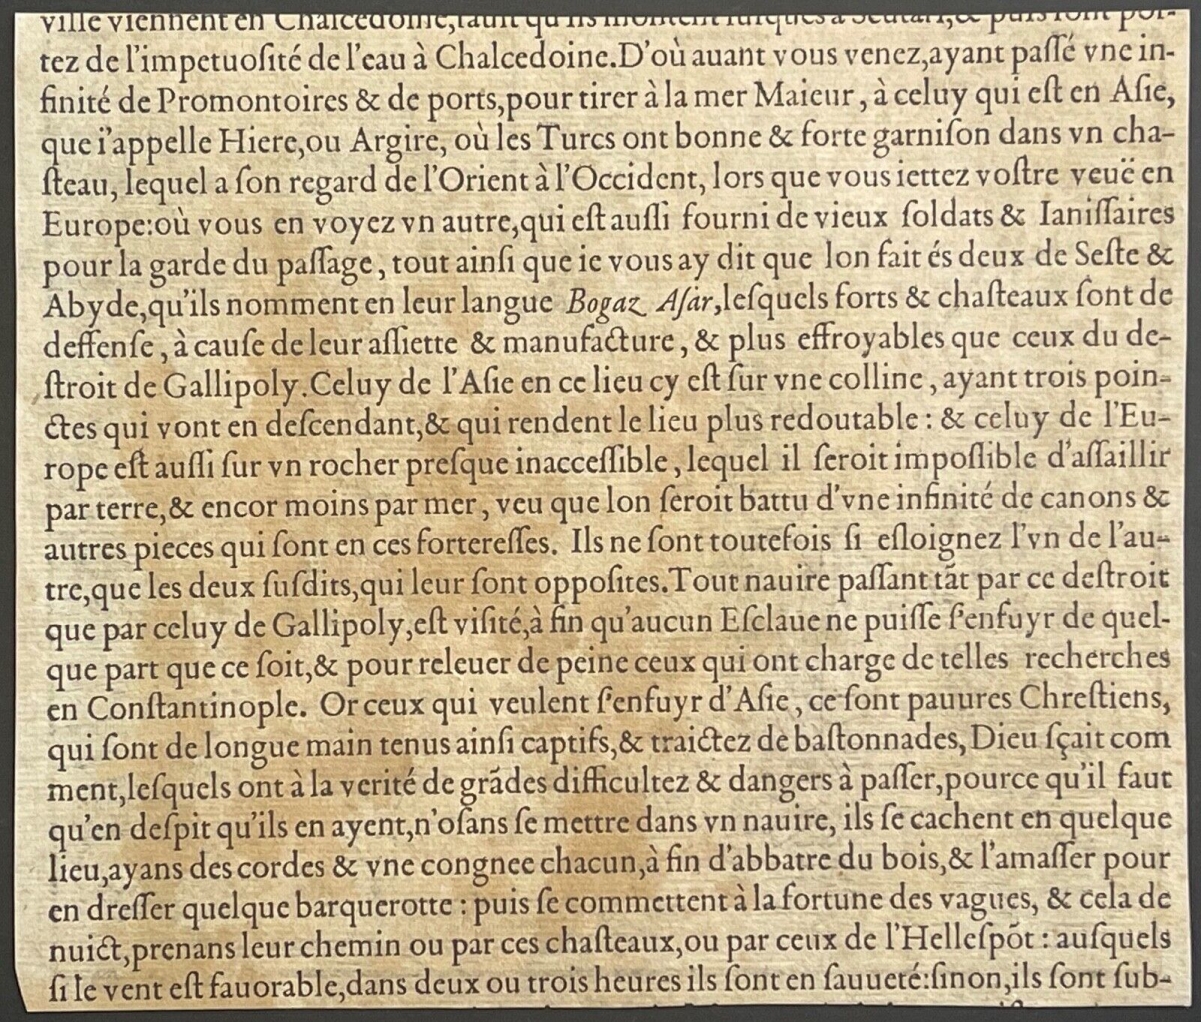 ville viennent en Chalcedoine, faut qu'ils montent iuſques à Scutari, & puis ſont por-
tez de l'impetuoſité de l'eau à Chalcedoine.D'où auant vous venez,ayant paſſé vne in-
finité de Promontoires & de ports,pour tirer à la mer Maieur, à celuy qui eſt en Aſie,
que i'appelle Hiere,ou Argire, où les Turcs ont bonne & forte garniſon dans vn cha-
ſteau, lequel a ſon regard de l'Orient à l'Occident, lors que vous iettez voſtre veuë en
Europe:où vous en voyez vn autre,qui eſt auſſi fourni de vieux ſoldats & Ianiſſaires
pour la garde du paſſage, tout ainſi que ie vous ay dit que lon fait és deux de Seſte &
Abyde,qu'ils nomment en leur langue Bogaz Aſar,leſquels forts & chaſteaux ſont de
deffenſe, à cauſe de leur aſſiette & manufacture, & plus effroyables que ceux du de-
ſtroit de Gallipoly.Celuy de l'Aſie en ce lieu cy eſt ſur vne colline, ayant trois poin-
ctes qui vont en deſcendant,& qui rendent le lieu plus redoutable : & celuy de l'Eu-
rope eſt auſſi ſur vn rocher preſque inacceſſible, lequel il ſeroit impoſſible d'aſſaillir
par terre,& encor moins par mer, veu que lon ſeroit battu d'vne infinité de canons &
autres pieces qui ſont en ces fortereſſes. Ils ne ſont toutefois ſi eſloignez l'vn de l'au-
tre,que les deux ſuſdits,qui leur ſont oppoſites.Tout nauire paſſant tāt par ce deſtroit
que par celuy de Gallipoly,eſt viſité,à fin qu'aucun Eſclaue ne puiſſe ſ'enfuyr de quel-
que part que ce ſoit,& pour releuer de peine ceux qui ont charge de telles recherches
en Conſtantinople. Or ceux qui veulent ſ'enfuyr d'Aſie, ce ſont pauures Chreſtiens,
qui ſont de longue main tenus ainſi captifs,& traictez de baſtonnades, Dieu ſçait com
ment,leſquels ont à la verité de grādes difficultez & dangers à paſſer,pource qu'il faut
qu'en deſpit qu'ils en ayent,n'oſans ſe mettre dans vn nauire, ils ſe cachent en quelque
lieu,ayans des cordes & vne congnee chacun,à fin d'abbatre du bois,& l'amaſſer pour
en dreſſer quelque barquerotte : puis ſe commettent à la fortune des vagues, & cela de
nuict,prenans leur chemin ou par ces chaſteaux,ou par ceux de l'Helleſpōt : auſquels
ſi le vent eſt fauorable,dans deux ou trois heures ils ſont en ſauueté:ſinon,ils ſont ſub-